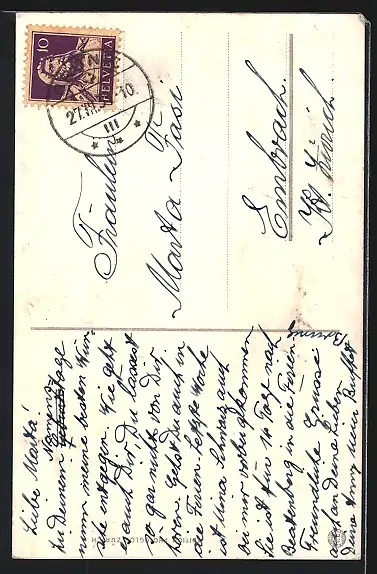 10
HELVETIA
27.VII.
10
III
Fräulein
Marta Fäsi
Embrach.
Kt. Zürich.
Liebe Marta!
Zu Deinem Namenstage
nimm meine besten Wün-
sche entgegen. Wie geht
es auch Dir, Du lässest
so gar nichts von Dir
hören. Gehst Du auch in
die Ferien. Letzte Woche
ist Nina Schwarz auch
bei mir vorbei gekommen
Sie ist für 14 Tage nach
Beatenberg in die Ferien.
Freundliche Grüsse
auch an deine Lieben
Deine